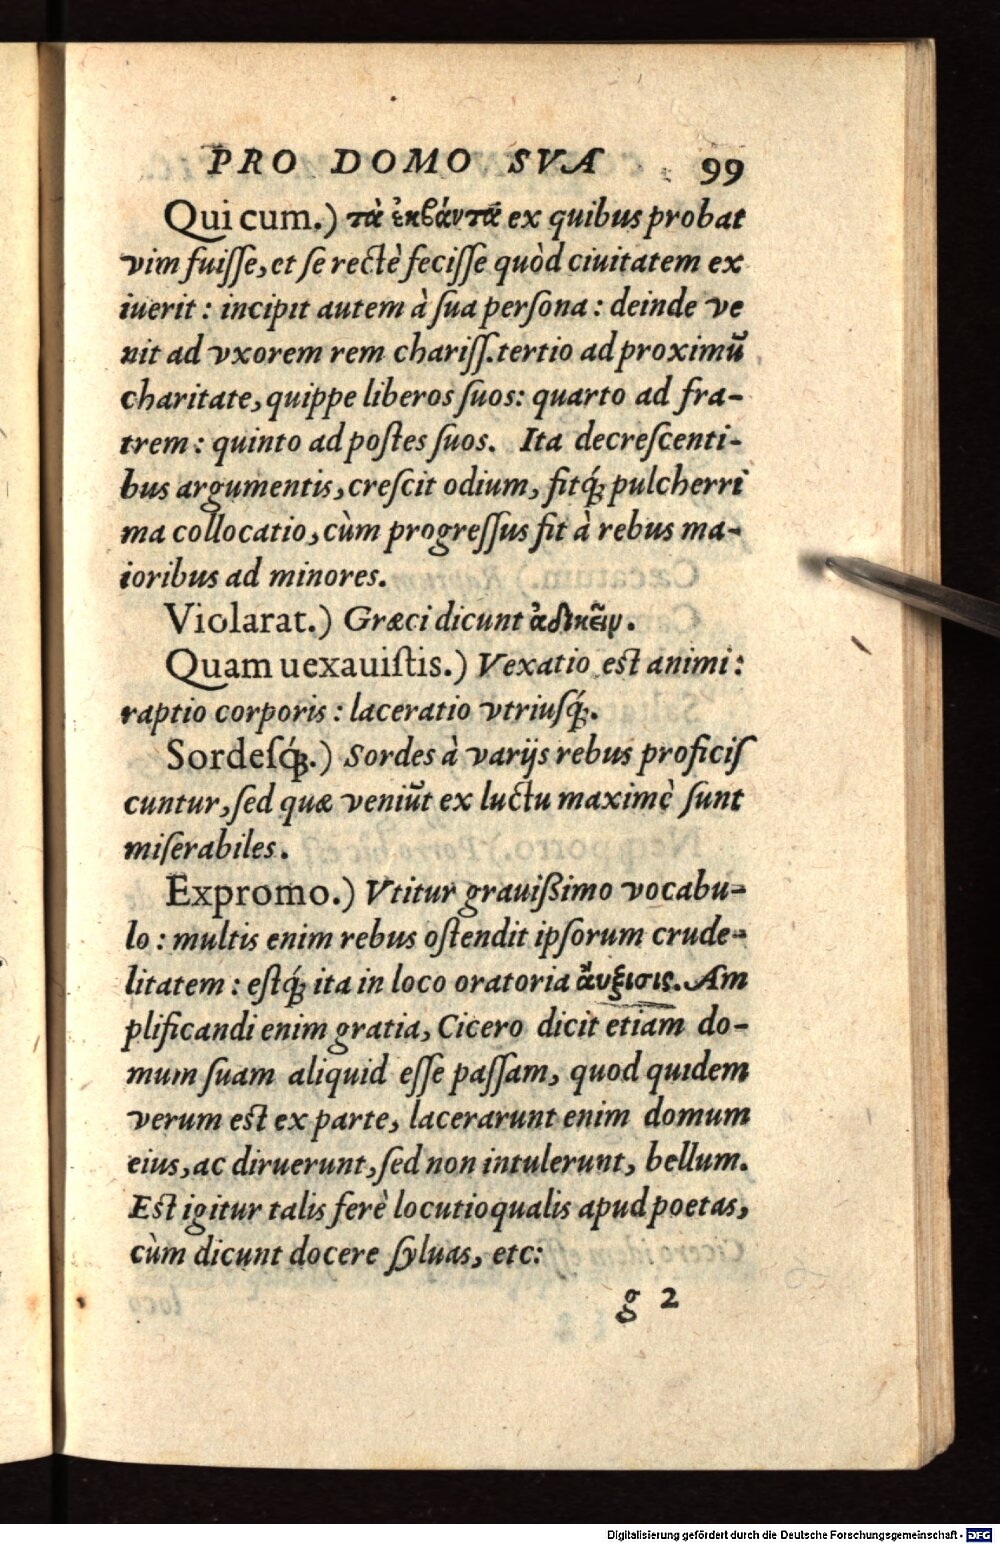 PRO DOMO SVA 99
Qui cum.) τὰ ἐκβάντα ex quibus probat
vim fuiſſe, et ſe rectè feciſſe quòd ciuitatem ex
iuerit : incipit autem à ſua perſona : deinde ve
nit ad vxorem rem chariſſ. tertio ad proximũ
charitate, quippe liberos ſuos: quarto ad fra-
trem : quinto ad poſtes ſuos. Ita decreſcenti-
bus argumentis, creſcit odium, fitq́; pulcherri
ma collocatio, cùm progreſſus fit à rebus ma-
ioribus ad minores.
Violarat.) Græci dicunt ἀδικεῖν.
Quam uexauiſtis.) Vexatio est animi :
raptio corporis : laceratio vtriuſq́;.
Sordeſq́;.) Sordes à varijs rebus proficiſ
cuntur, ſed quæ veniũt ex luctu maximè ſunt
miſerabiles.
Expromo.) Vtitur grauißimo vocabu-
lo : multis enim rebus oſtendit ipſorum crude-
litatem : eſtq́; ita in loco oratoria ἄυξισις. Am
plificandi enim gratia, Cicero dicit etiam do-
mum ſuam aliquid eſſe paſſam, quod quidem
verum est ex parte, lacerarunt enim domum
eius, ac diruerunt, ſed non intulerunt, bellum.
Est igitur talis ferè locutio qualis apud poetas,
cùm dicunt docere ſyluas, etc:
g 2
Digitalisierung gefördert durch die Deutsche Forschungsgemeinschaft - DFG